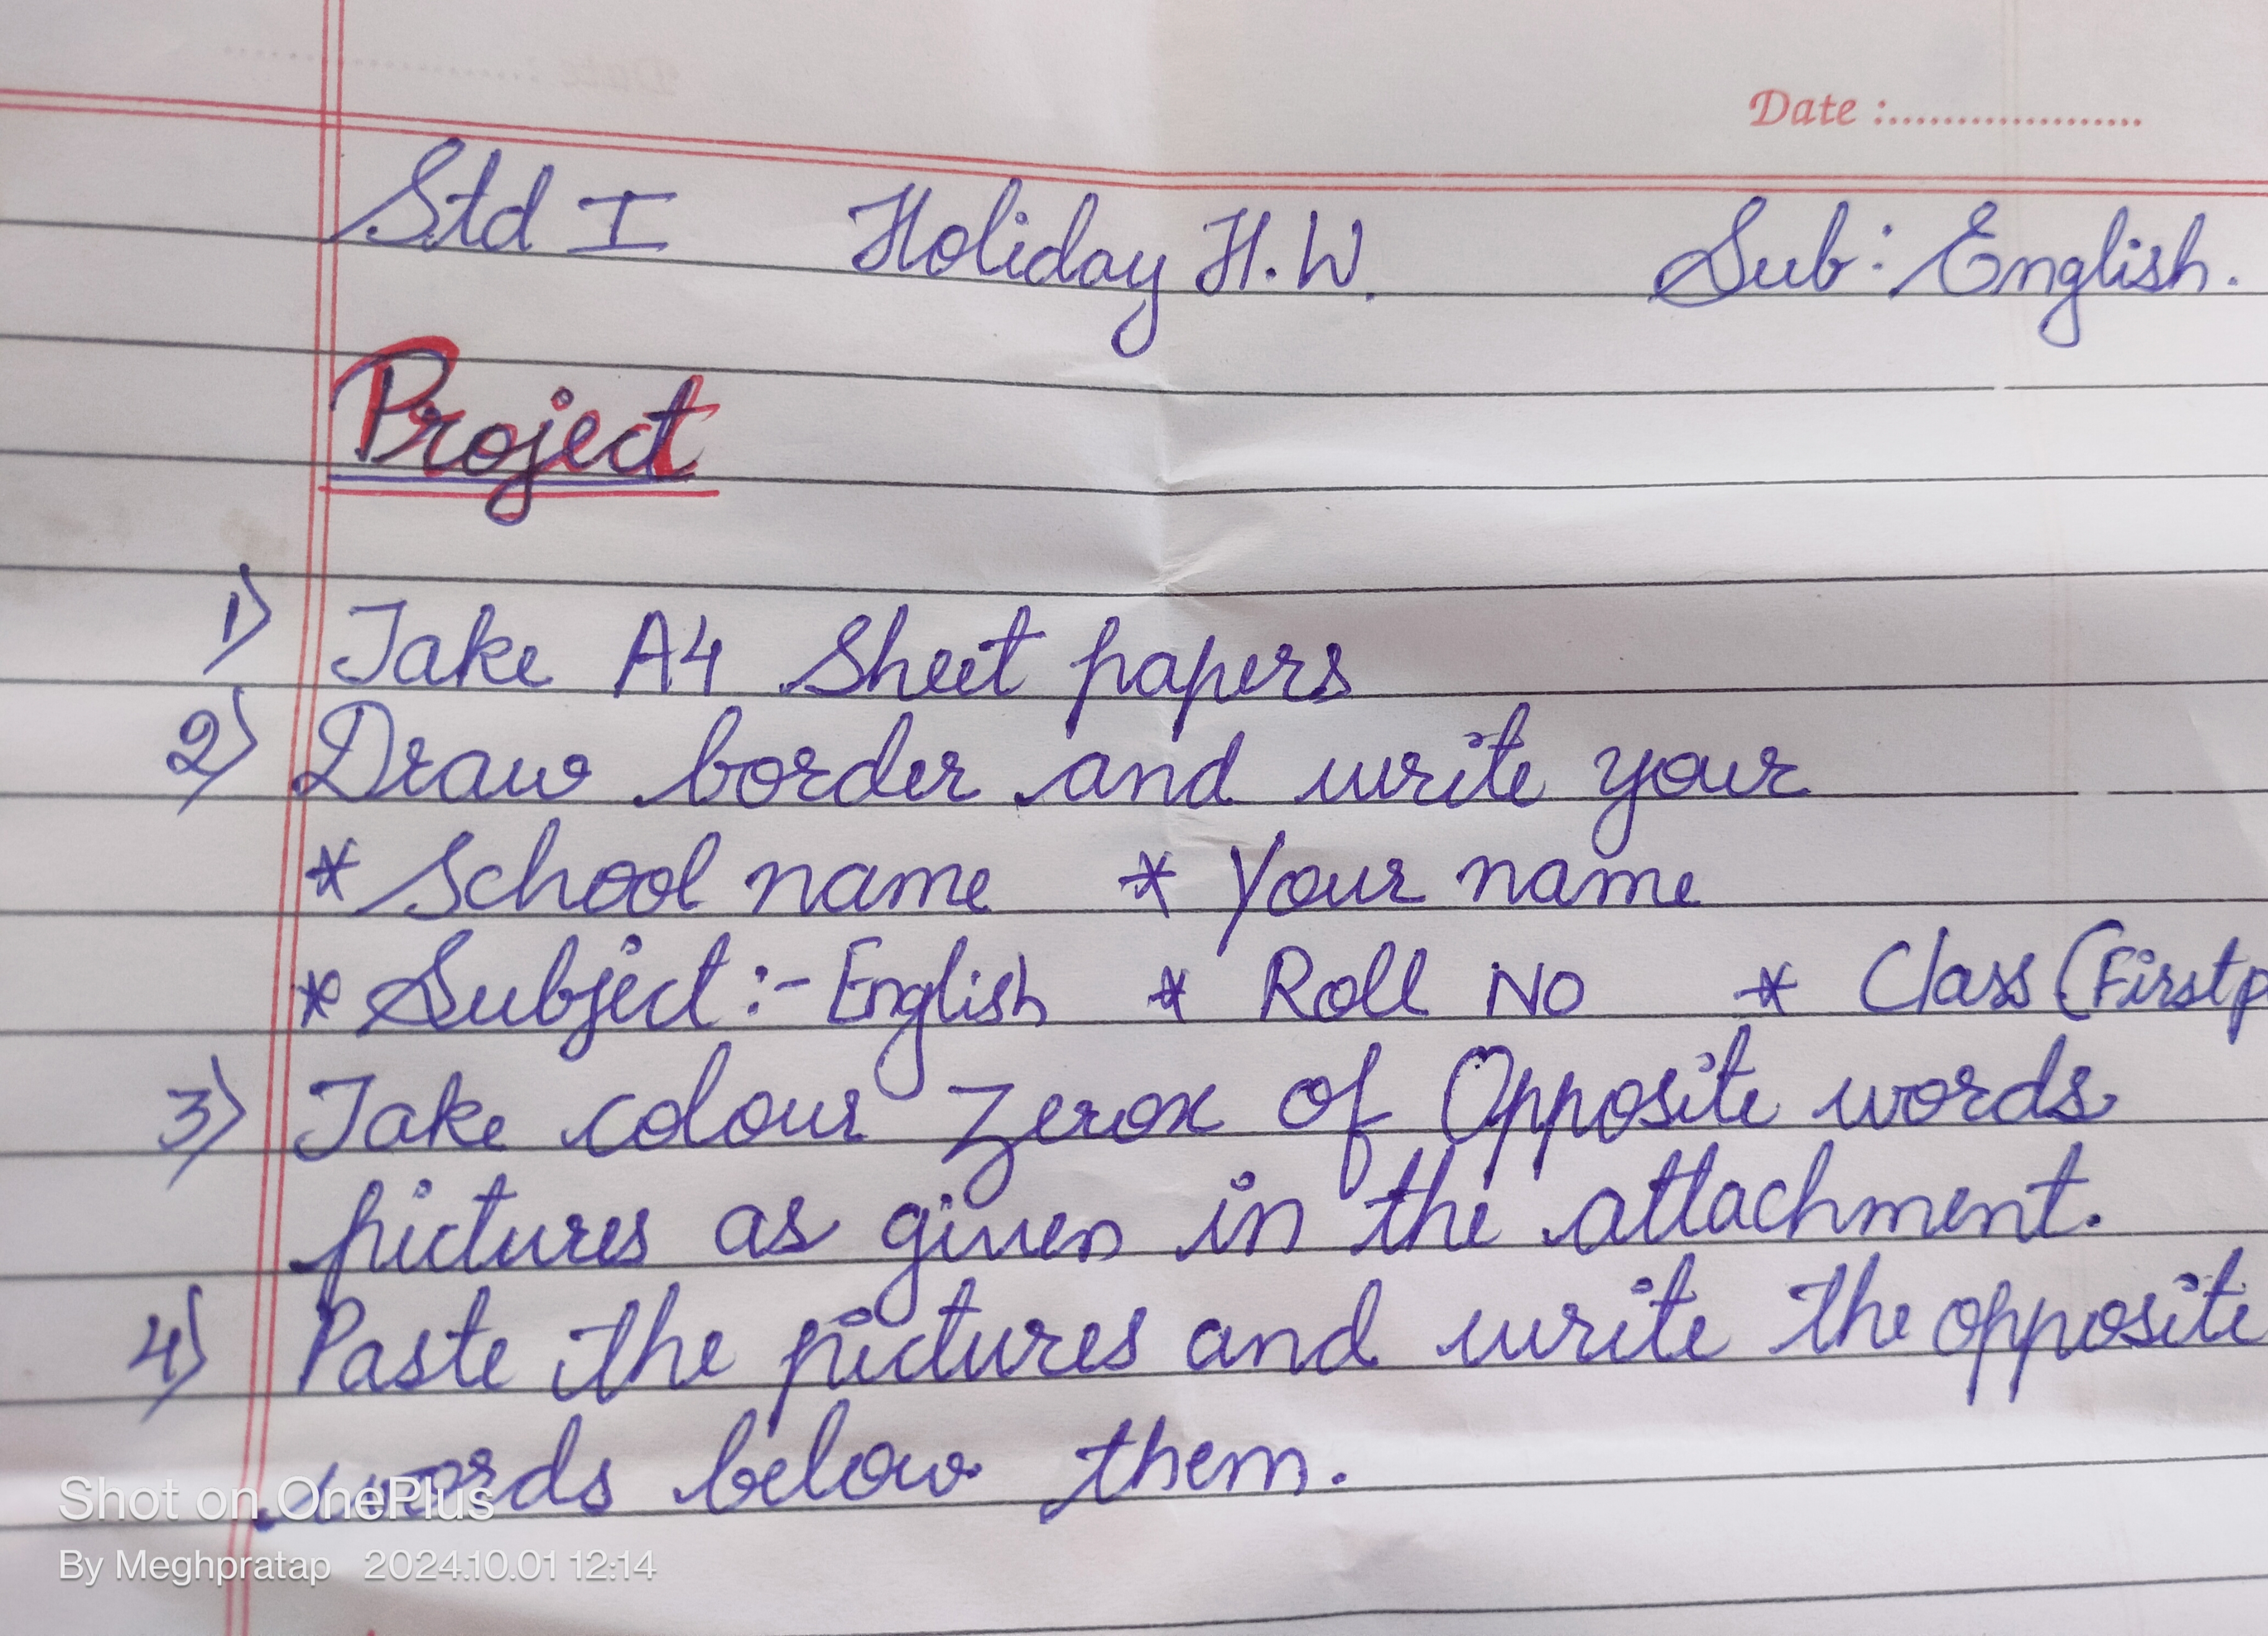 Date :....................
Std I Holiday H.W. Sub: English.
Project
1) Take A4 Sheet papers
2) Draw border and write your
* School name * Your name
* Subject :- English * Roll No * Class (First p
3) Take colour Zerox of Opposite words
pictures as given in the attachment.
4) Paste the pictures and write the opposite
words below them.
Shot on OnePlus
By Meghpratap 2024.10.01 12:14